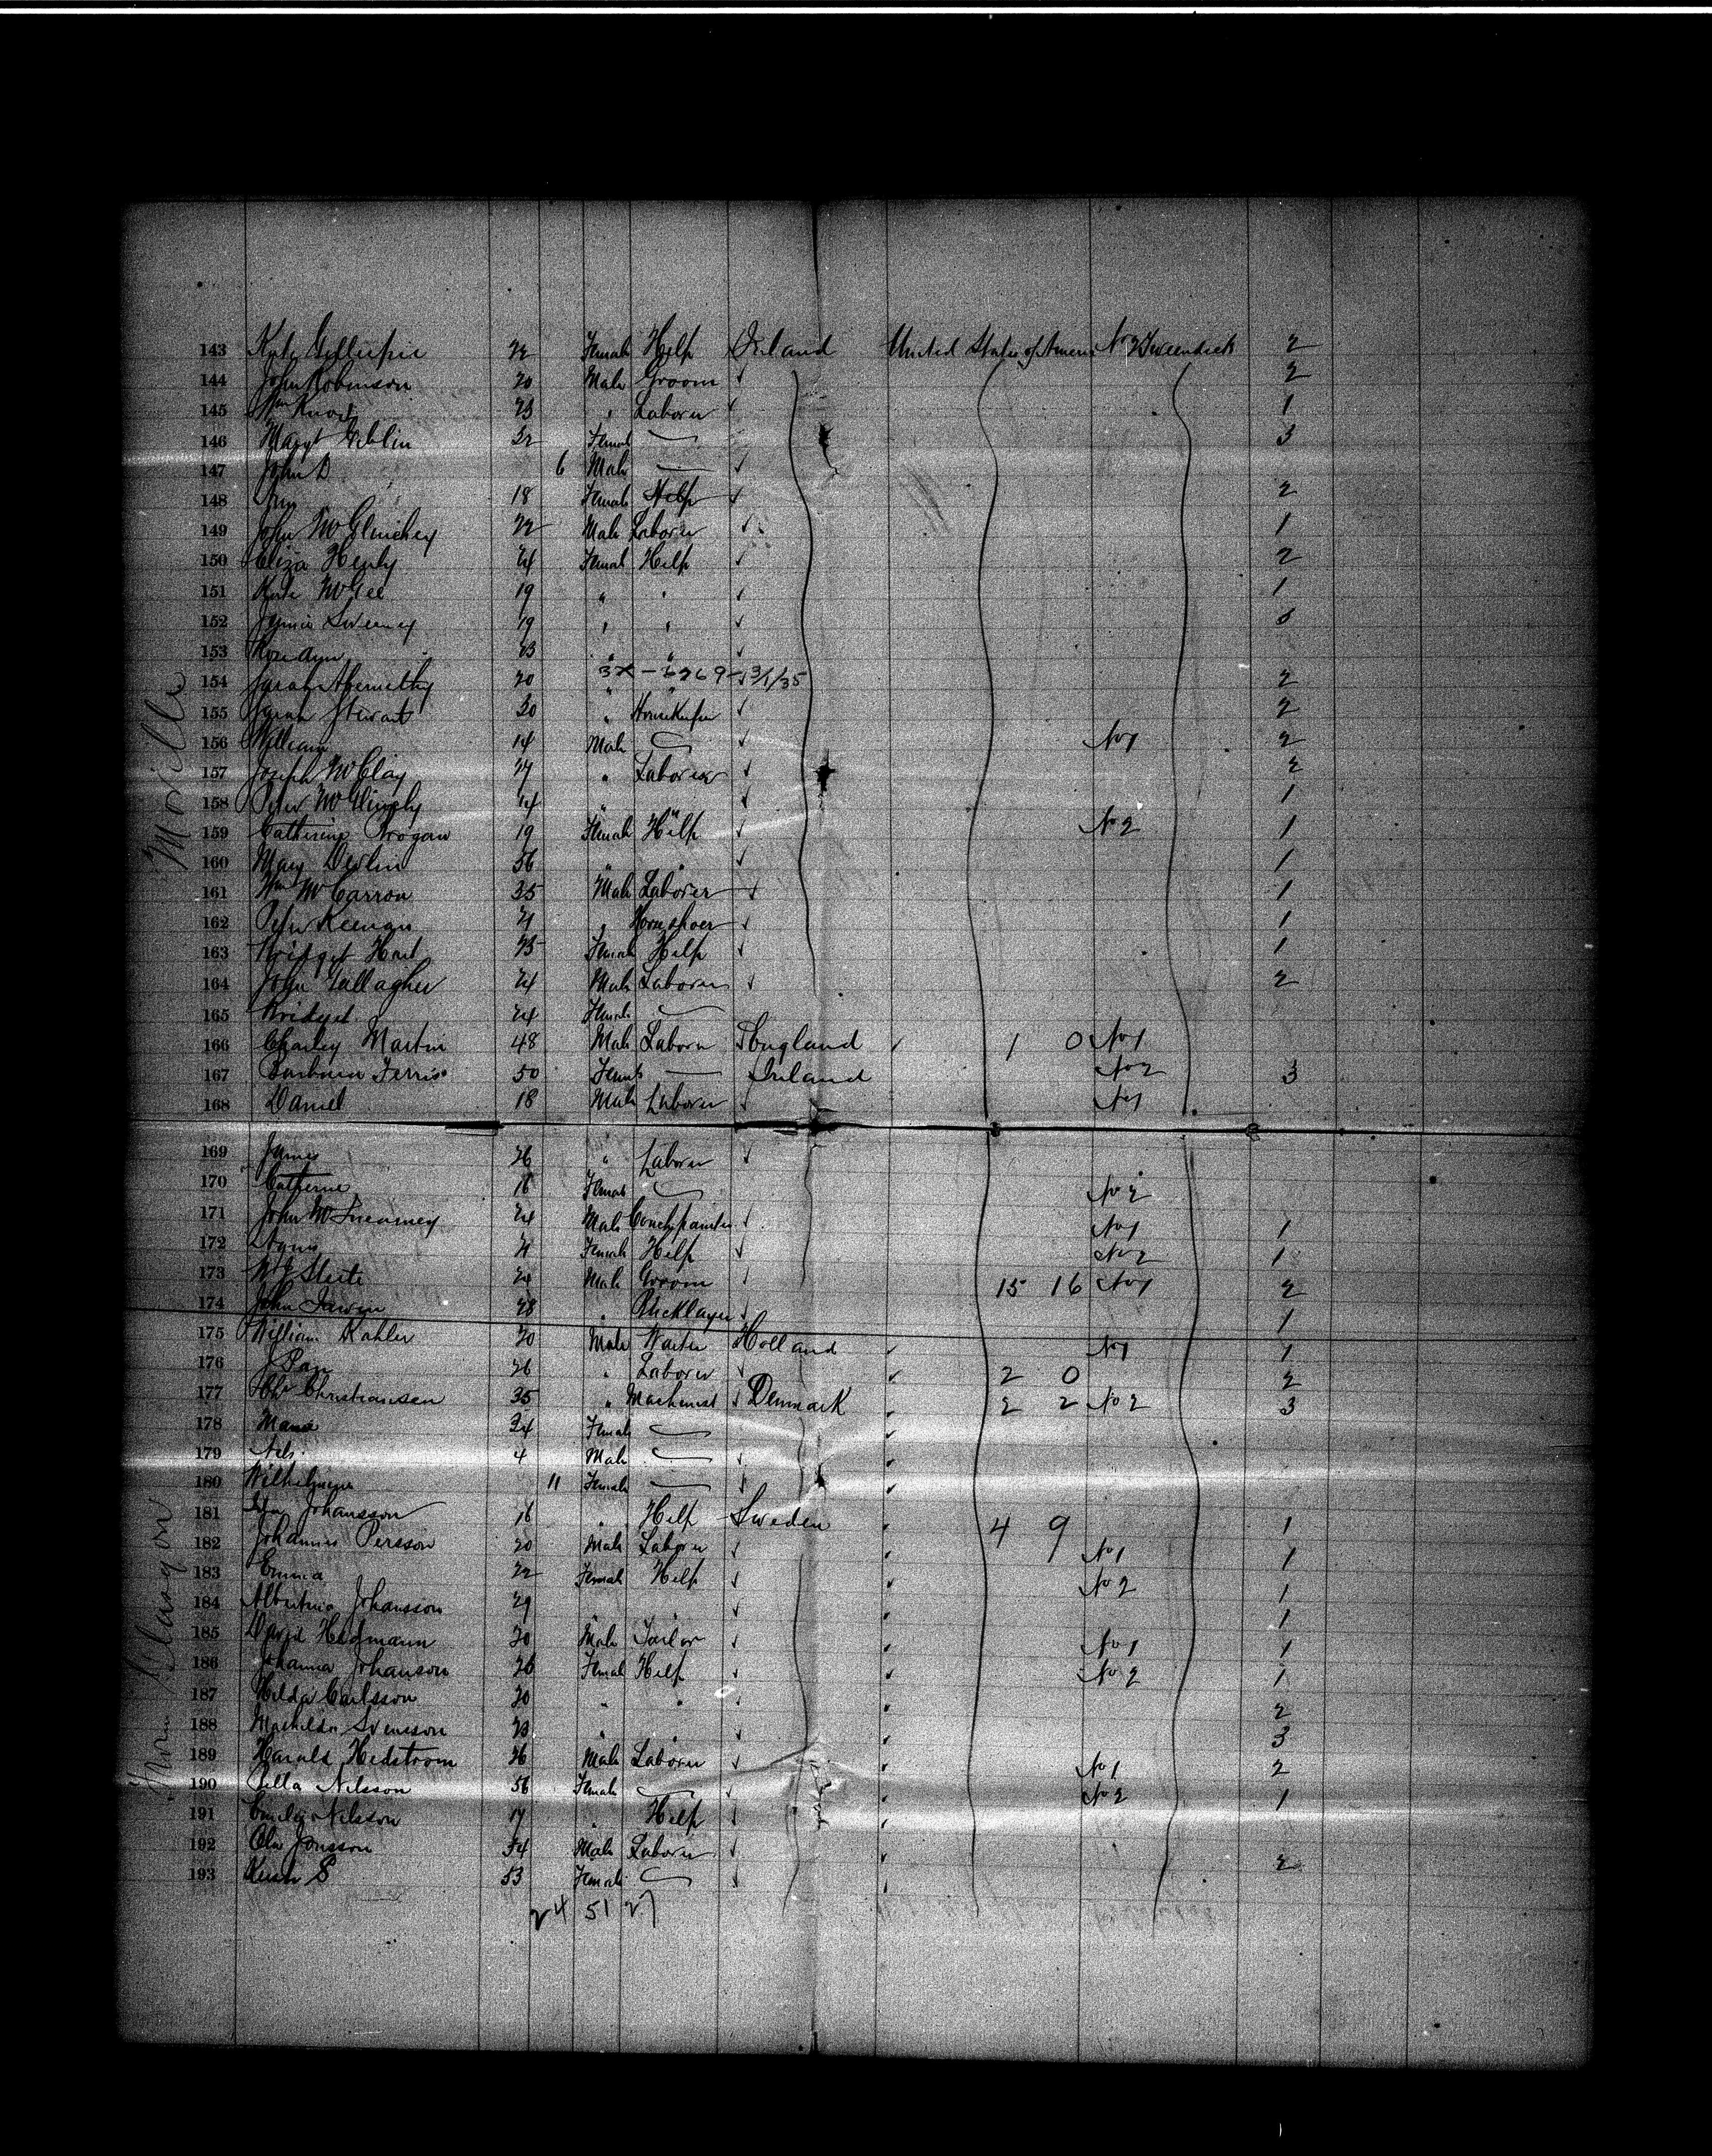 143 Gillespie 22 Female Help Ireland United States of America No 2 Tweendeck 2
144 John Robinson 20 Male Groom 2
145 Wm Knox 23 " Laborer 1
146 Margt 32 Female 3
147 John D 6 Male
148 18 Female Help 2
149 John McGlinchey 22 Male Laborer 1
150 Eliza 24 Female Help 2
151 Kate McGee 19 " " 1
152 Sweeney 19 " "
153 Rose Ann 23 " "
3X - 6269 - 3/1/35
154 Sarah Abernethy 20 " 2
155 Sarah Stewart 30 " Housekeeper 2
156 William 14 Male No 1 2
157 Joseph McClay 27 " Laborer 2
158 Peter 14 " " 1
159 Catherine Grogan 19 Female Help No 2 1
160 Mary Devlin 56 " " 1
161 Wm McCarron 35 Male Laborer 1
162 Peter Keenan 21 " Horseshoer 1
163 Bridget 23 Female Help 1
164 John Gallagher 24 Male Laborer 2
165 Bridget 24 Female
166 Charley Martin 48 Male Laborer England 1 0 No 1
167 Barbara Ferris 50 Female Ireland No 2 3
168 Daniel 18 Male Laborer No 1
Moville
169 James 26 " Laborer
170 Catherine 16 Female No 2
171 John 24 Male Coachpainter No 1 1
172 21 Female Help No 2 1
173 24 Male Groom 15 16 No 1 2
174 John Irwin 28 " Bricklayer 1
175 William Kahler 20 Male Waiter Holland No 1 1
176 26 " Laborer 2 0 2
177 Chr Christiansen 35 " Machinist Denmark 2 2 No 2 3
178 34 Female
179 Nels 4 Male
180 Wilhelmina 11 Female
181 Johansson 16 " Help Sweden 4 9 1
182 Johannes Persson 20 Male Laborer No 1 1
183 Emma 22 Female Help No 2 1
184 Albertina Johansson 29 " " 1
185 David 20 Male Tailor No 1 1
186 Johanna Johanson 26 Female Help No 2 1
187 Hilda Carlsson 20 " " 2
188 Mathilda Svensson 23 " " 3
189 Harald Hedstrom 26 Male Laborer No 1 2
190 Pella Nilsson 56 Female No 2 1
191 Emily Nilsson 17 " Help
192 Ola Jonsson 54 Male Laborer 2
193 53 Female
From Glasgow
24 51 27